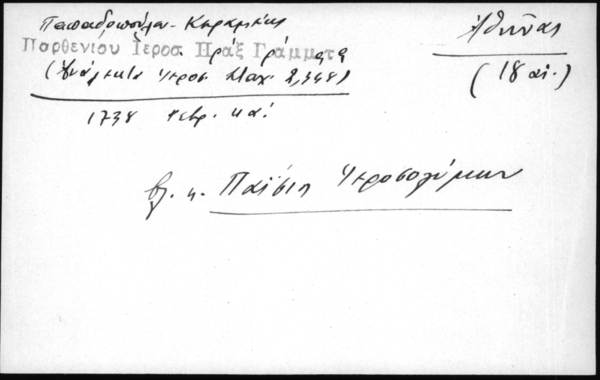 Παπαδοπούλου-Κεραμέως
Ἀθῆναι
Παρθενίου Ἱεροσ Πράξ Γράμματα
(Ἀνάλεκτα Ἱεροσ Σταχ 2, 348)
(18 αἰ.)
1738 Φεβρ. κα΄
βλ. κ. Παϊσίῃ Ἱεροσολύμων